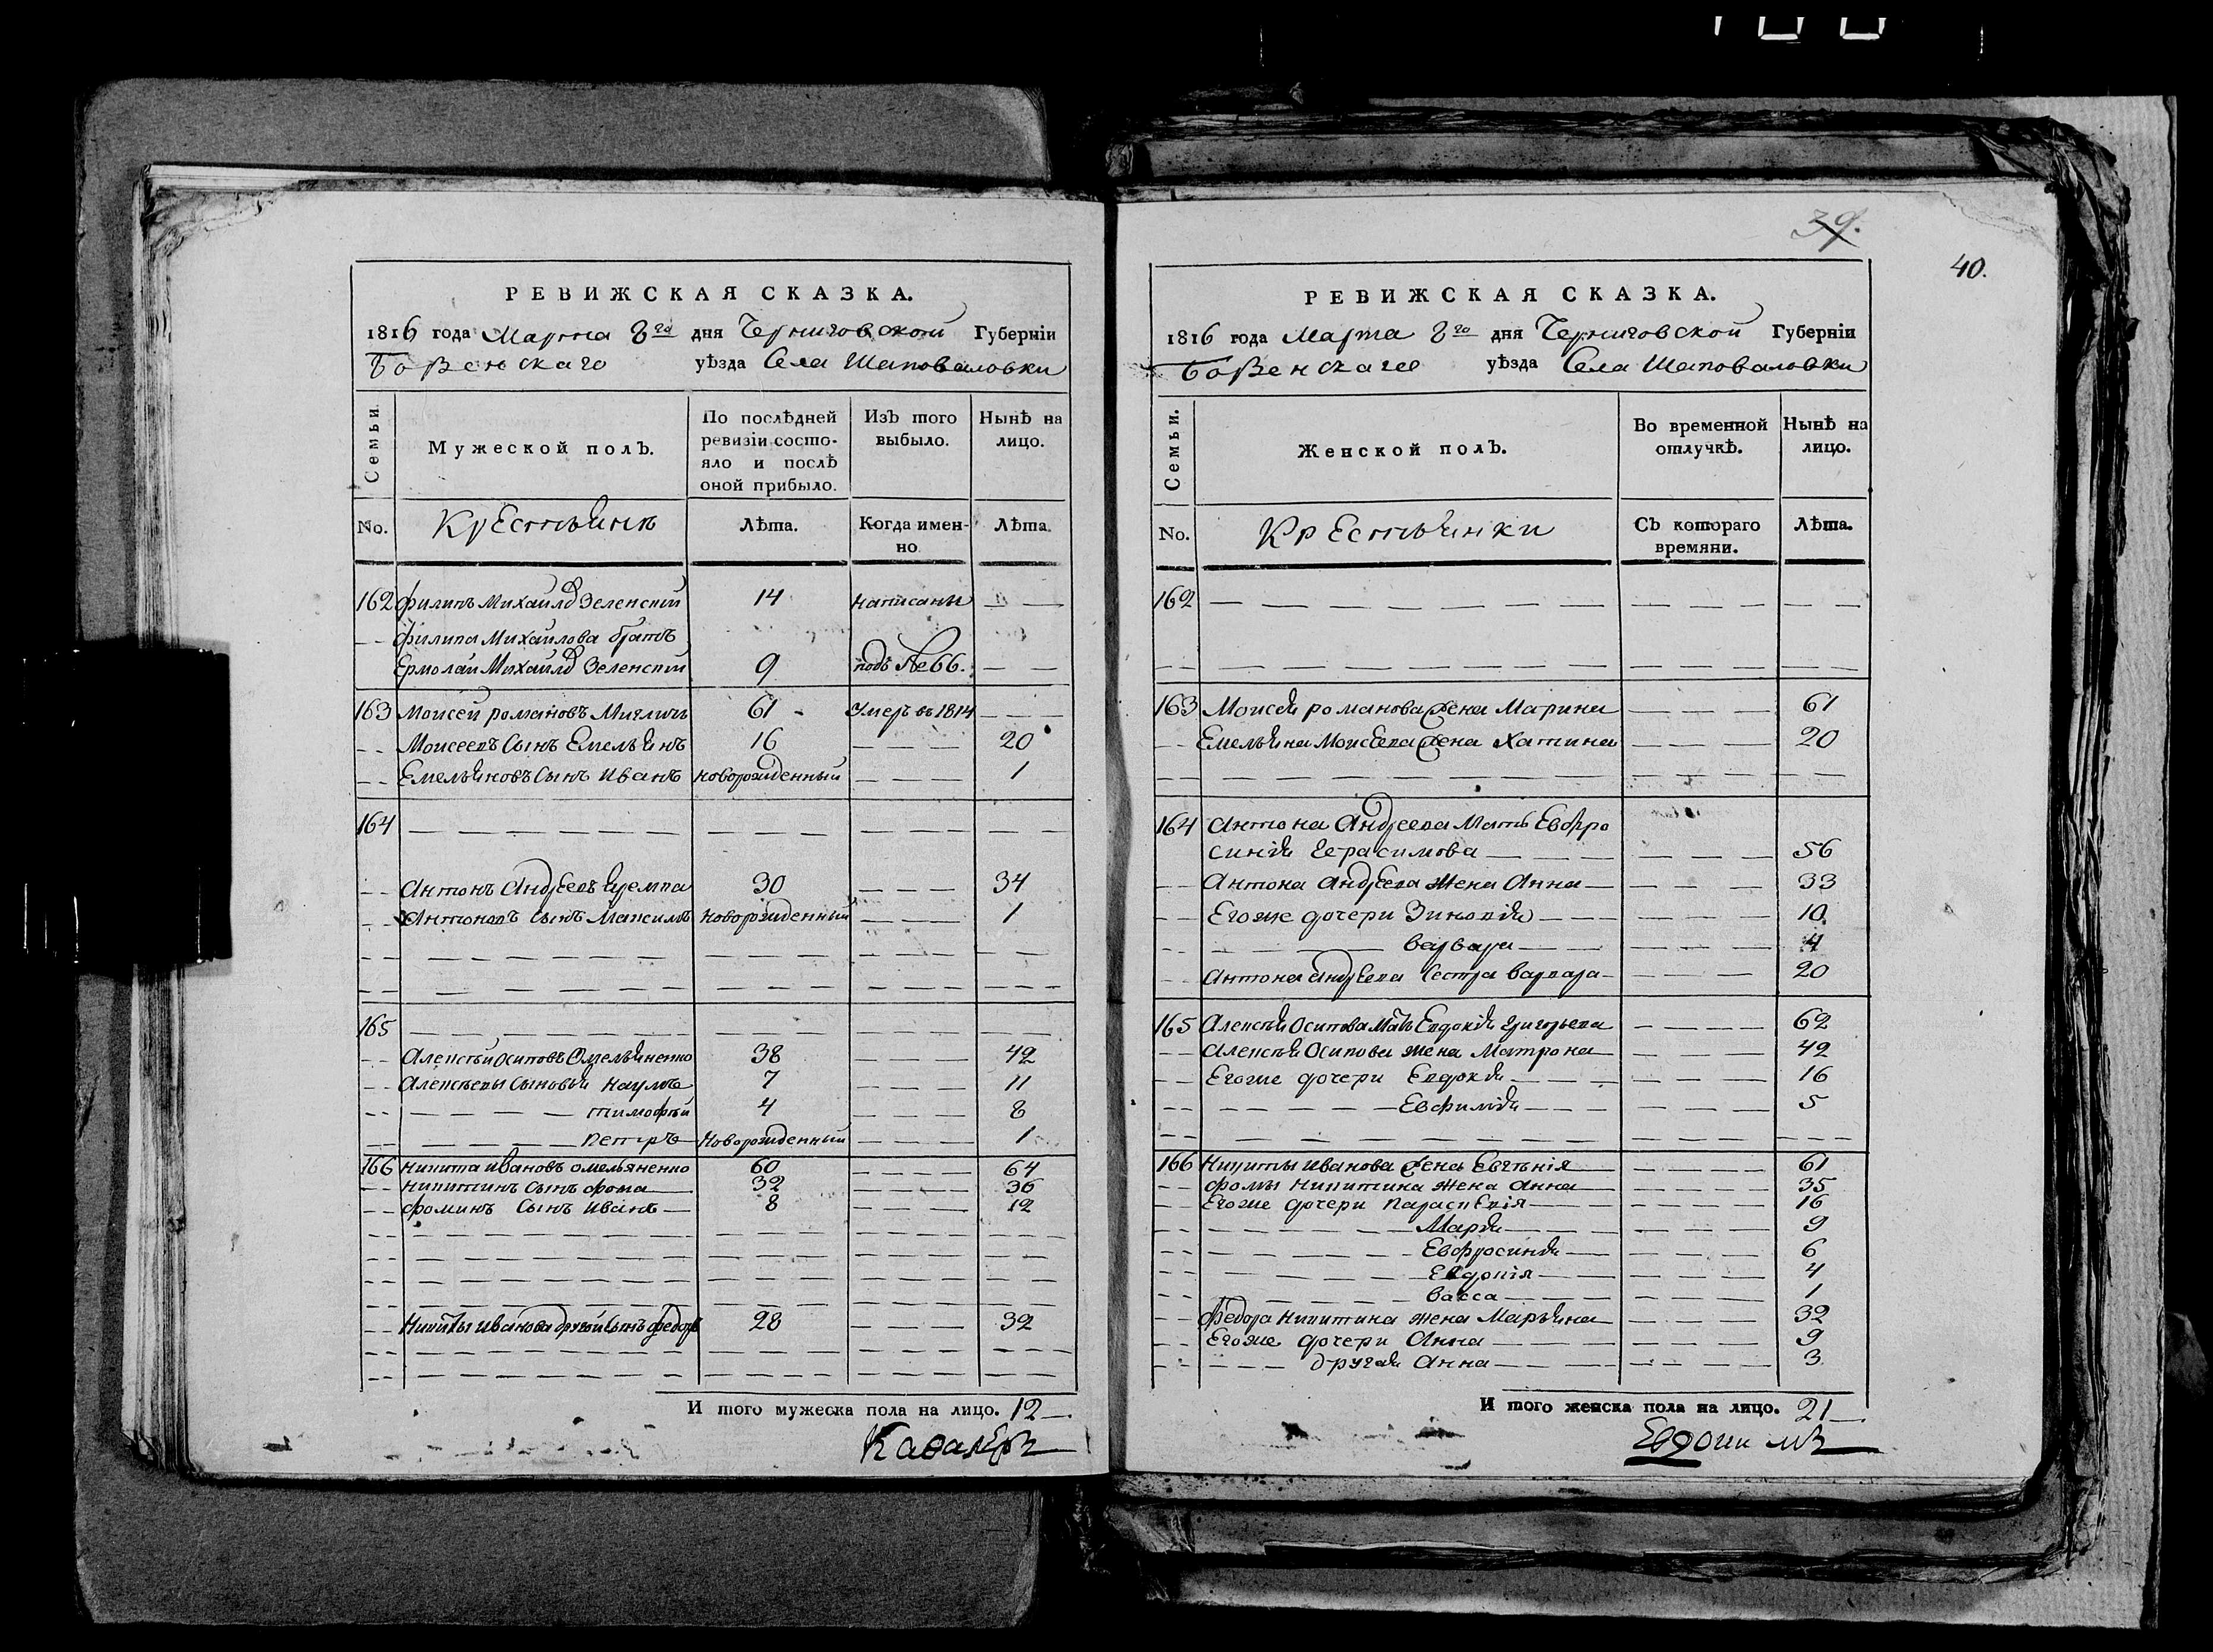 РЕВИЖСКАЯ СКАЗКА.
1816 года Марта 8го дня Черниговской Губерніи
Борзенскаго уѣзда Села Шаповаловки
Семьи.
Мужеской полЪ.
По послѣдней ревизіи состо-
яло и послѣ
оной прибыло.
ИзЪ того выбыло.
НынѢ на лицо.
No.
Крестьянѣ
ЛѢта.
Когда имен-
но.
ЛѢта.
162 Филипъ Михайловъ Зеленский 14 написаны — —
— — Филипа Михайлова братъ
Ермолай Михайловъ Зеленский 9 подъ №66. — —
163 Моисей романовъ 61 — Умеръ въ 1814 — — —
— — Моисеевъ Сынъ Емельянъ 16 — — — 20
— — Емельяновъ Сынъ Иванъ новорожденный — — — 1
164 — — — — — —
— — Антонъ Андреевъ 30 — — — 34
— — Антоновъ Сынъ Максимъ новорожденный — — — 1
165 — — — — — —
— — Алексѣй Осиповъ Омельяненко 38 — — — 42
— — Алексѣевы Сыновья Наумъ 7 — — — 11
— — — — — — тимофѣй 4 — — — 8
— — — — — Петръ Новорожденный — — — 1
166 Никита Ивановъ омельяненко 60 — — — 64
— — Никитинъ Сынъ Фома 32 — — — 36
— — Фоминъ Сынъ Иванъ — 8 — — — 12
— — Никиты Иванова другой Сынъ Федоръ 28 — — — 32
И того мужеска пола на лицо. 12 —.
Кавалеръ
39.
40.
РЕВИЖСКАЯ СКАЗКА.
1816 года Марта 8го дня Черниговской Губерніи
Борзенскаго уѣзда Села Шаповаловки
Семьи.
Женской полЪ.
Во временной отлучкѢ.
НынѢ на лицо.
No.
Крестьянки
СЪ котораго времяни.
ЛѢта.
162 — — — — — —
163 Моисея романова жена Марина — — — 61
— — Емельяна Моисеева жена — — — 20
164 Антона Андреева Мать Евфро
синія Герасимова — — — 56
— — Антона Андреева жена Анна — — — — 33
— — Егоже дочери Зиновія — — — 10
— — — — — варвара — — — 4
— — Антона Андреева Сестра варвара — — — — 20
165 Алексѣя Осипова Мать Евдокія Григорьева — — — 62
— — Алексѣя Осипова жена Матрона — — — — 42
— — Егоже дочери Евдокія — — — 16
— — — — — — Евфимія — — — 5
166 Никиты Иванова жена Евгѣнія — — — 61
— — Фомы Никитина жена Анна — — — 35
— — Егоже дочери Параскевія — — — 16
— — — — — — Марія — — — 9
— — — — — — Евфросинія — — — 6
— — — — — — Евдокія — — — 4
— — — — — — васса — — — 1
— — Федора Никитина жена Марьяна — — — 32
— — Егоже дочери Анна — — — 9
— — — — — другая Анна — — — 3
И того женска пола на лицо. 21 —.
Евдоки мъ